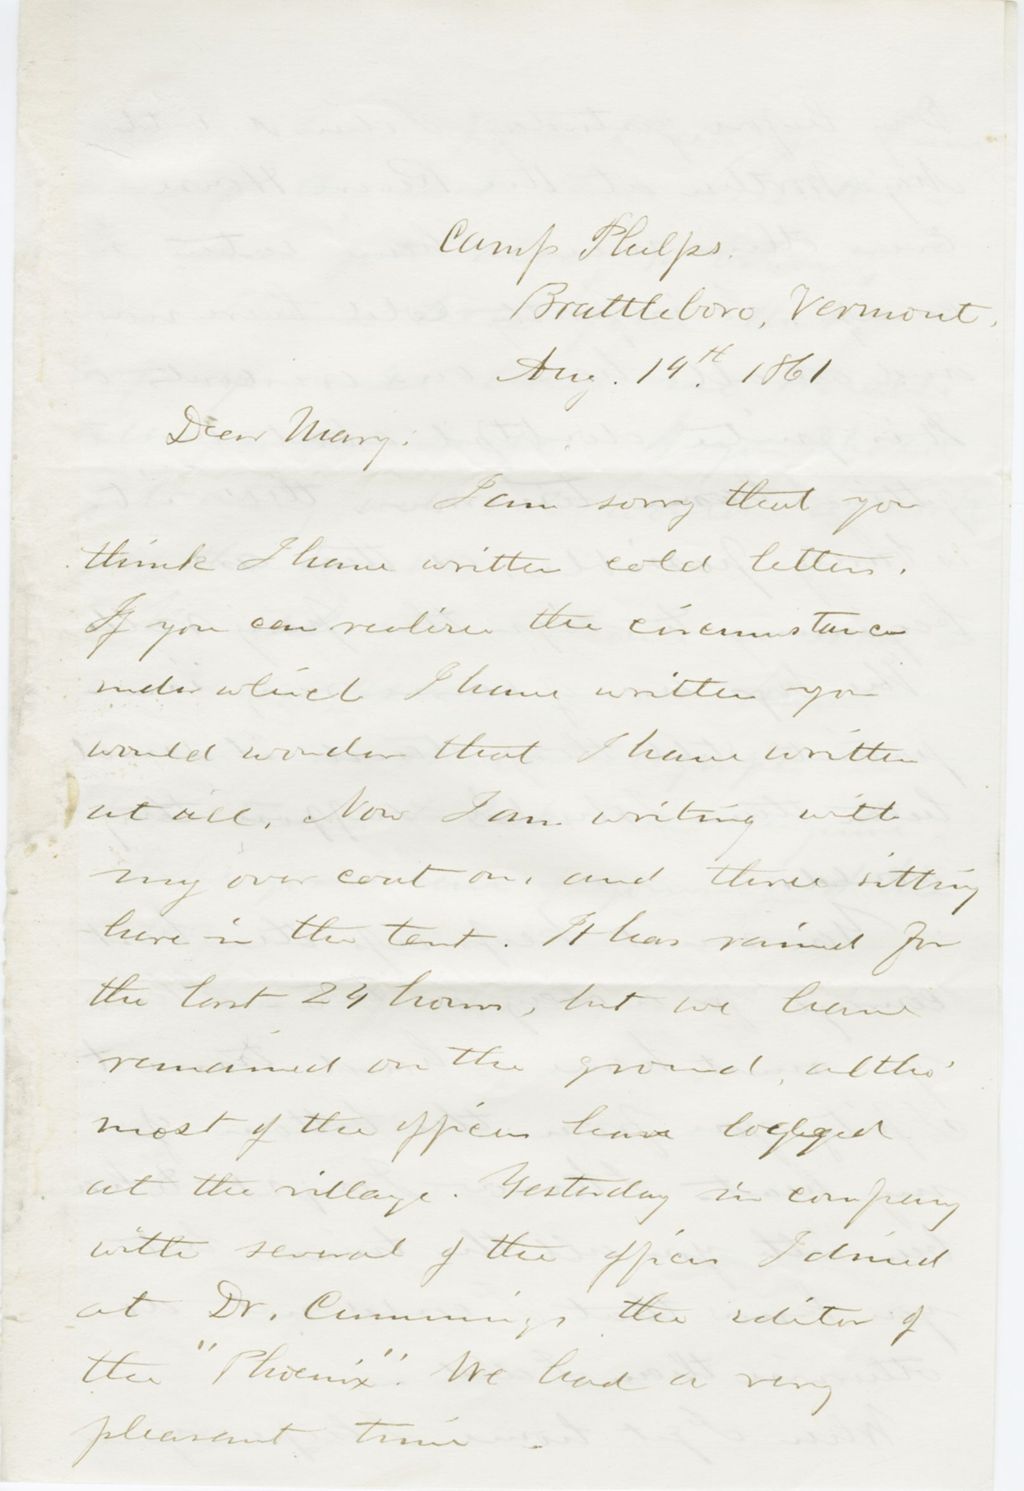 Camp Phelps.
Brattleboro, Vermont.
Aug. 19th. 1861
Dear Mary:
I am sorry that you
think I have written cold letters.
If you can realize the circumstance
under which I have written you
would wonder that I have written
at all. Now I am writing with
my over coat on, and three sitting
here in the tent. It has rained for
the last 24 hours, but we have
remained on the ground, altho'
most of the officers have logged
at the village. Yesterday in company
with several of the officers I dined
at Dr. Cummings the editor of
the "Phoenix". We had a very
pleasant time.